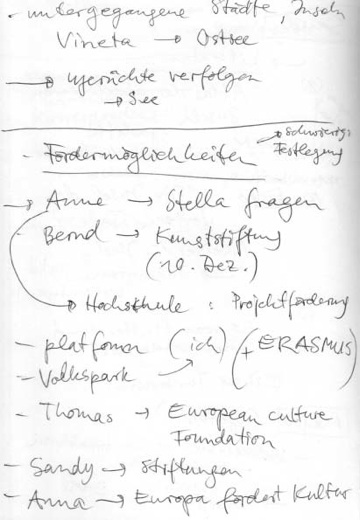 - untergegangene Städte, Inseln
Vineta → Ostsee
→ Gerüchte verfolgen
→ See
- Fördermöglichkeiten → schwierig
Festlegung
→ Anne → Stella fragen
Bernd → Kunststiftung
(10. Dez.)
→ Hochschule : Projektförderung
- platfoma (ich) (+ ERASMUS)
- Volkspark →
- Thomas → European culture
Foundation
- Sandy → Stiftungen
- Anna → Europa fördert Kultur